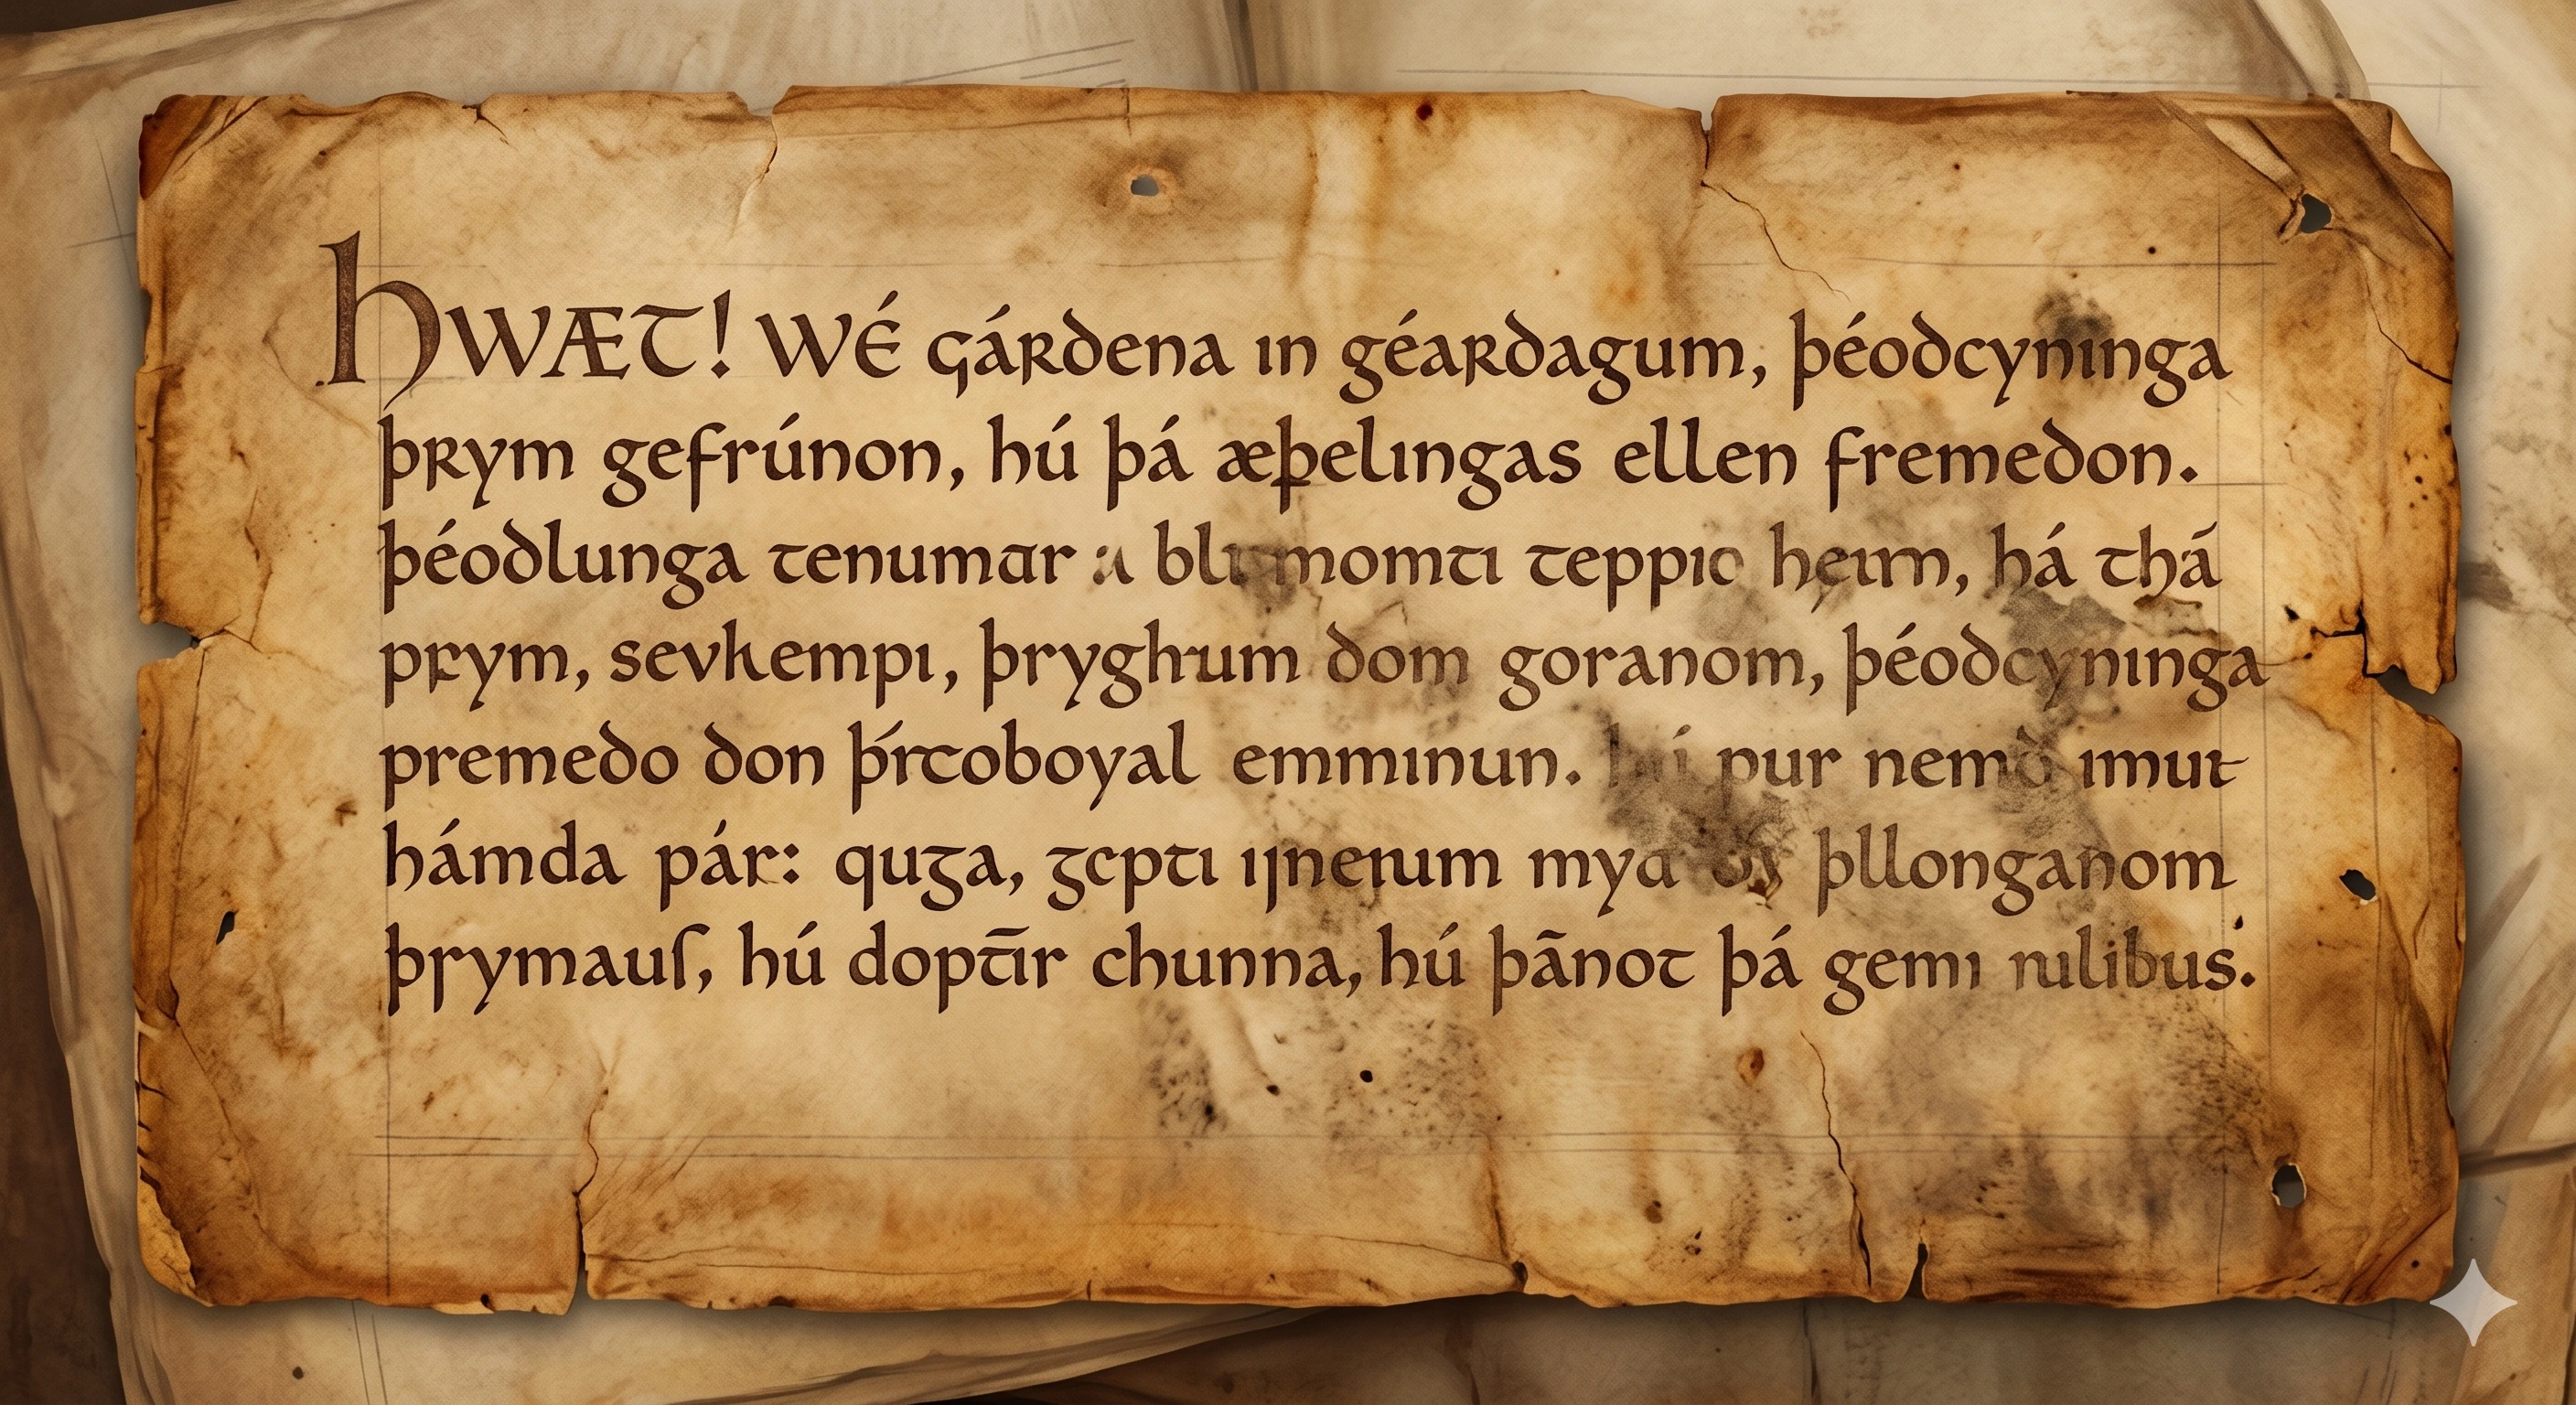 HWÆT! WÉ gárdena in géardagum, þéodcyninga
þrym gefrúnon, hú þá æþelingas ellen fremedon.
þéodlunga tenumar momti teppic heim, há thã
prym, sevkempi, þryghum dom goranom, þéodcyninga
premedo don þŕtoboyal emminun. pur imut
hámda pár: quga, gcpti mya þllonganom
þrymauſ, hú doptir chunna, hú þãnot þá gemi rulibus.